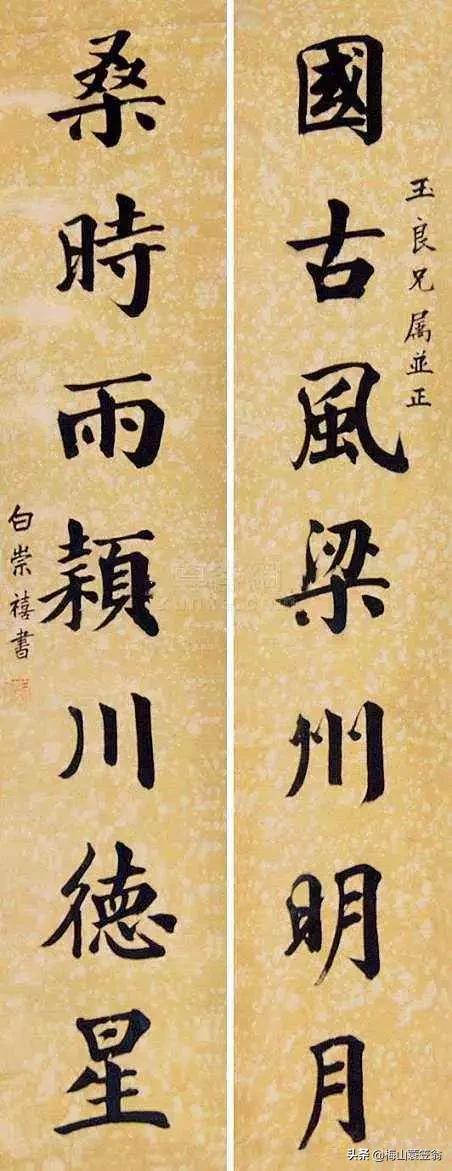 玉良兄属並正
國古風梁州明月
桑時雨頴川德星
白崇禧書
头条 @梅山蓑笠翁